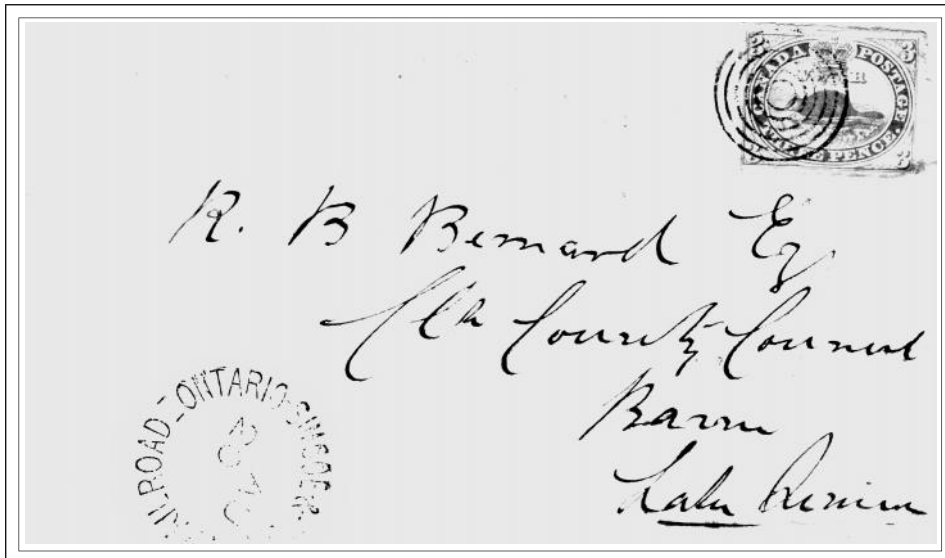 3 3
CANADA POSTAGE.
THREE PENCE.
3
R. B Bernard Esq
Clk County Council
Barrie
Lake Simcoe
RAILROAD ONTARIO SIMCOE &